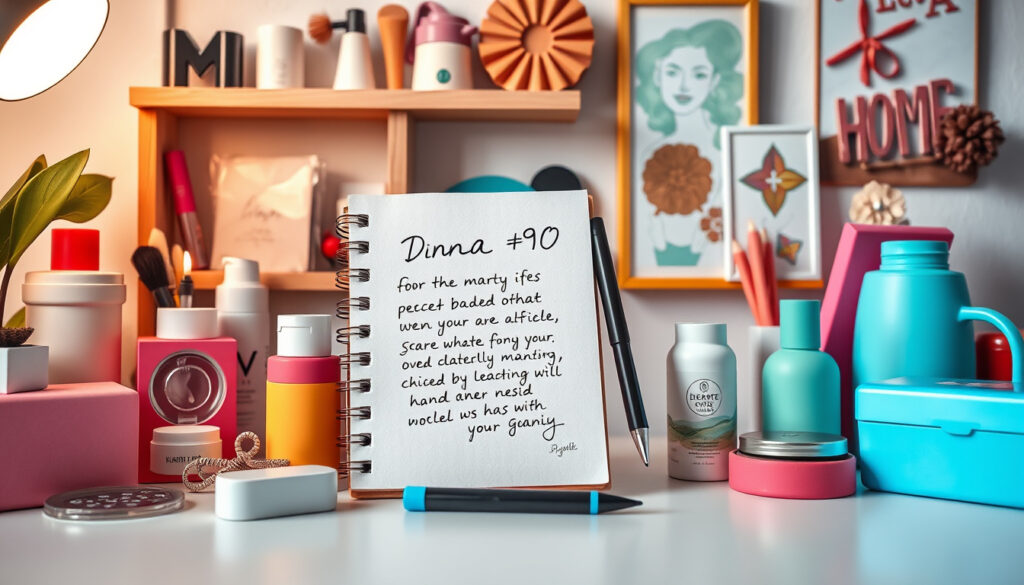 M
HOME
Dinna #90
foor the marty ifes
peccet baded othat
wen your are afficle,
scare whate fony your.
oved claterlly mantirg,
chiced by leacting will
hand aner nesid
woclel ws has with
your Gcaniy